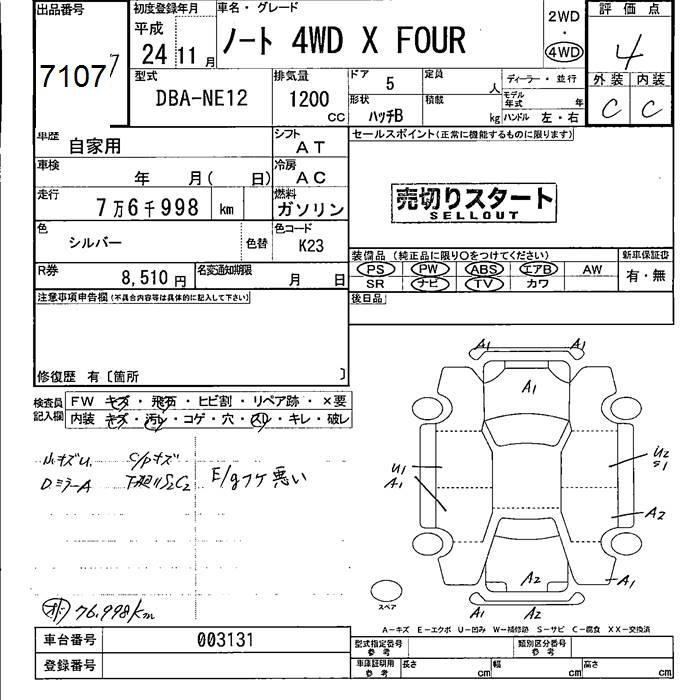 出品番号
初度登録年月
車名・グレード
評価点
平成
24 11月
ノート 4WD X FOUR
2WD
・
4WD
4
7107
型式
DBA-NE12
排気量
1200
CC
ドア 5
定員 人
ディーラー・並行
外装 内装
C C
形状 ハッチB
積載 kg
モデル年式 年
ハンドル 左・右
車歴 自家用
シフト AT
セールスポイント(正常に機能するものに限ります)
車検 年 月( 日)
冷房 AC
走行 7万6千998 km
燃料 ガソリン
売切りスタート
SELLOUT
色 シルバー 色替
色コード K23
装備品 (純正品に限り○をつけてください)
新車保証書
PS PW ABS エアB AW
有・無
R券 8,510円
名変通知期限 月 日
SR ナビ TV カワ
注意事項申告欄(不具合内容等は具体的に記入して下さい)
後日品
修復歴 有〔箇所 〕
検査員記入欄
FW キズ・飛石・ヒビ割・リペア跡・×要
内装 キズ・汚レ・コゲ・穴・スリ・キレ・破レ
小キズU. C/Pキズ
DミラーA 下廻りS2C2 E/gフケ悪い
A1 A1
A1
U1
A1
U2
S1
A2
A2
A1
A1 A2
スペア
76.998km
A-キズ E-エクボ U-凹み W-補修跡 S-サビ C-腐食 XX-交換済
車台番号 003131
型式指定番号 参考
類別区分番号 参考
登録番号
車庫証明用 参考
長さ cm
幅 cm
高さ cm